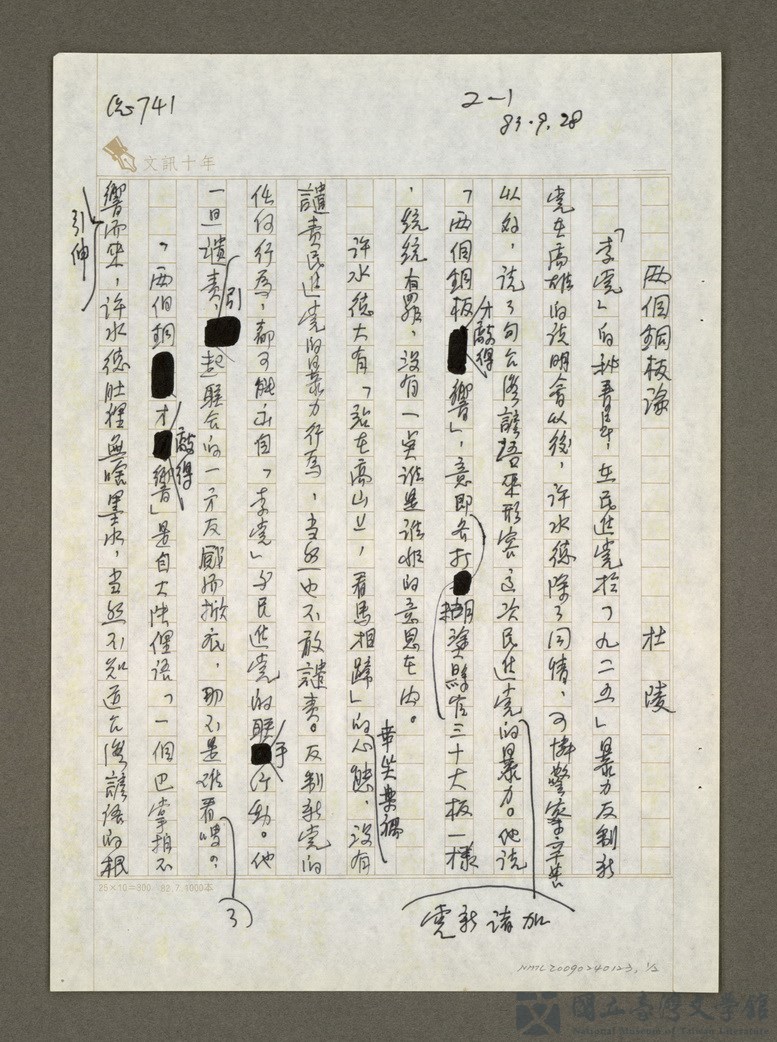 2-1
83.9.28
741
文訊十年
兩個銅板論
杜陵
「李黨」的秘書長，在民進黨於「九二五」暴力反制新
黨在高雄的說明會以後，許水德除了同情、可憐警察辛苦
以外，說了句台灣諺語來形容這次民進黨的暴力。他說
加諸新黨
「兩個銅板 響」，意即各打 糊塗縣官三十大板一樣
分敲得
，統統有罪，沒有一點誰是誰非的意思在內。
許水德大有「站在高山上，看馬相踢」的心態，沒有
幸災樂禍
譴責民進黨的暴力行為，當然也不敢譴責。反制新黨的
任何行為，都可能出自「李黨」與民進黨的聯 行動。他
手
一旦譴責 起聯合的一方反鄙而掀底，那不是難看嗎？
引
了
「兩個銅 才 響」是自大陸俚語「一個巴掌拍不
敲得
響而來，許水德肚裡無啥墨水，當然不知道台灣諺語的根
引伸
25×10=250 82.7.1000本
NMLC20090240123, 1/2
國立臺灣文學館
National Museum of Taiwan Literature